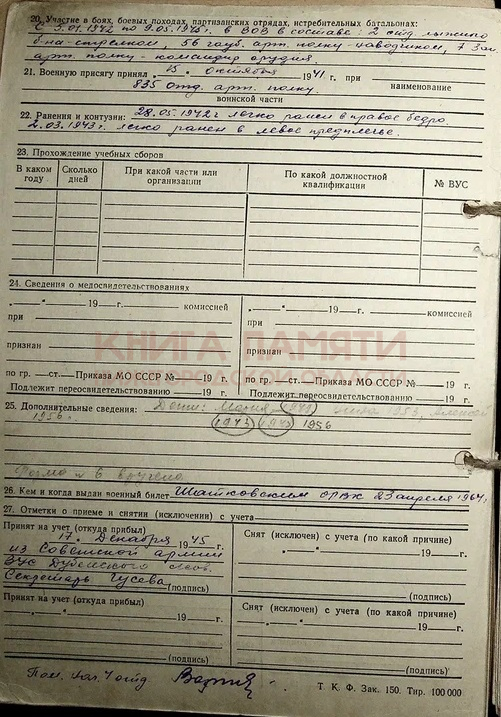 20. Участие в боях, боевых походах, партизанских отрядах, истребительных батальонах:
С 5.01.1942 по 9.05.1945г. в ВОВ в составе: 2 отд. лыжного
б-на-стрелком, 56 гауб. арт. полку-наводчиком, 7 Зап.
арт. полку-командир орудия.
21. Военную присягу принял „15“ октября 1941 г. при
наименование
835 отд. арт. полку.
воинской части
22. Ранения и контузии: 28.05.1942г легко ранен в правое бедро.
2.03.1943г. легко ранен в левое предплечье.
23. Прохождение учебных сборов
В каком году
Сколько дней
При какой части или организации
По какой должностной квалификации
№ ВУС
24. Сведения о медосвидетельствованиях
„—“ 19—г. комиссией
при
признан
по гр. —ст.—Приказа МО СССР №—19 г.
Подлежит переосвидетельствованию—19 г.
„—“ 19—г. комиссией
при
признан
по гр. —ст.—Приказа МО СССР №—19 г.
Подлежит переосвидетельствованию—19 г.
КНИГА ПАМЯТИ
ОБЛАСТИ
25. Дополнительные сведения: Дети: Мария Алексей
1956.
1956
Форма № 6 вручена
26. Кем и когда выдан военный билет Шатковским ОРВК 23 апреля 1964г.
27. Отметки о приеме и снятии (исключении) с учета
Принят на учет (откуда прибыл)
17. Декабря 1945 г.
из Советской армии
ВУС Дубенского
Секретарь Гусева
(подпись)
Снят (исключен) с учета (по какой причине)
„—“ 19—г.
(подпись)
Принят на учет (откуда прибыл)
„—“ 19—г.
(подпись)
Снят (исключен) с учета (по какой причине)
„—“ 19—г.
(подпись)
Пом. нач. 4 отд.
Т. К. Ф. Зак. 150. Тир. 100 000